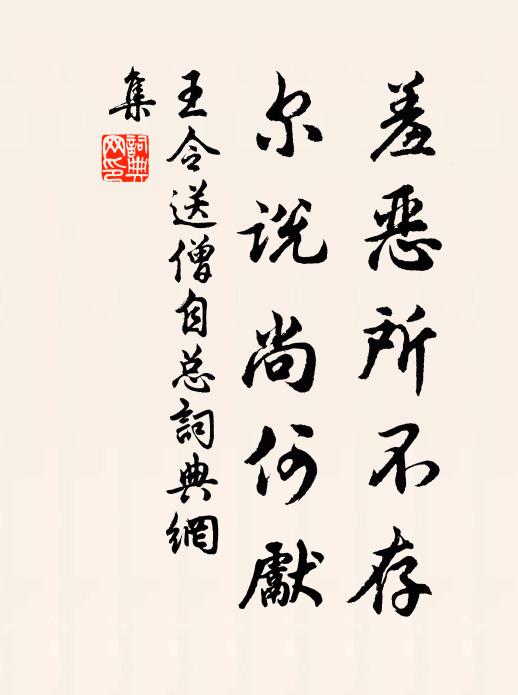 羞惡所不存
尔説尚何獻
王令送僧自总詞典網
集
詞典網印